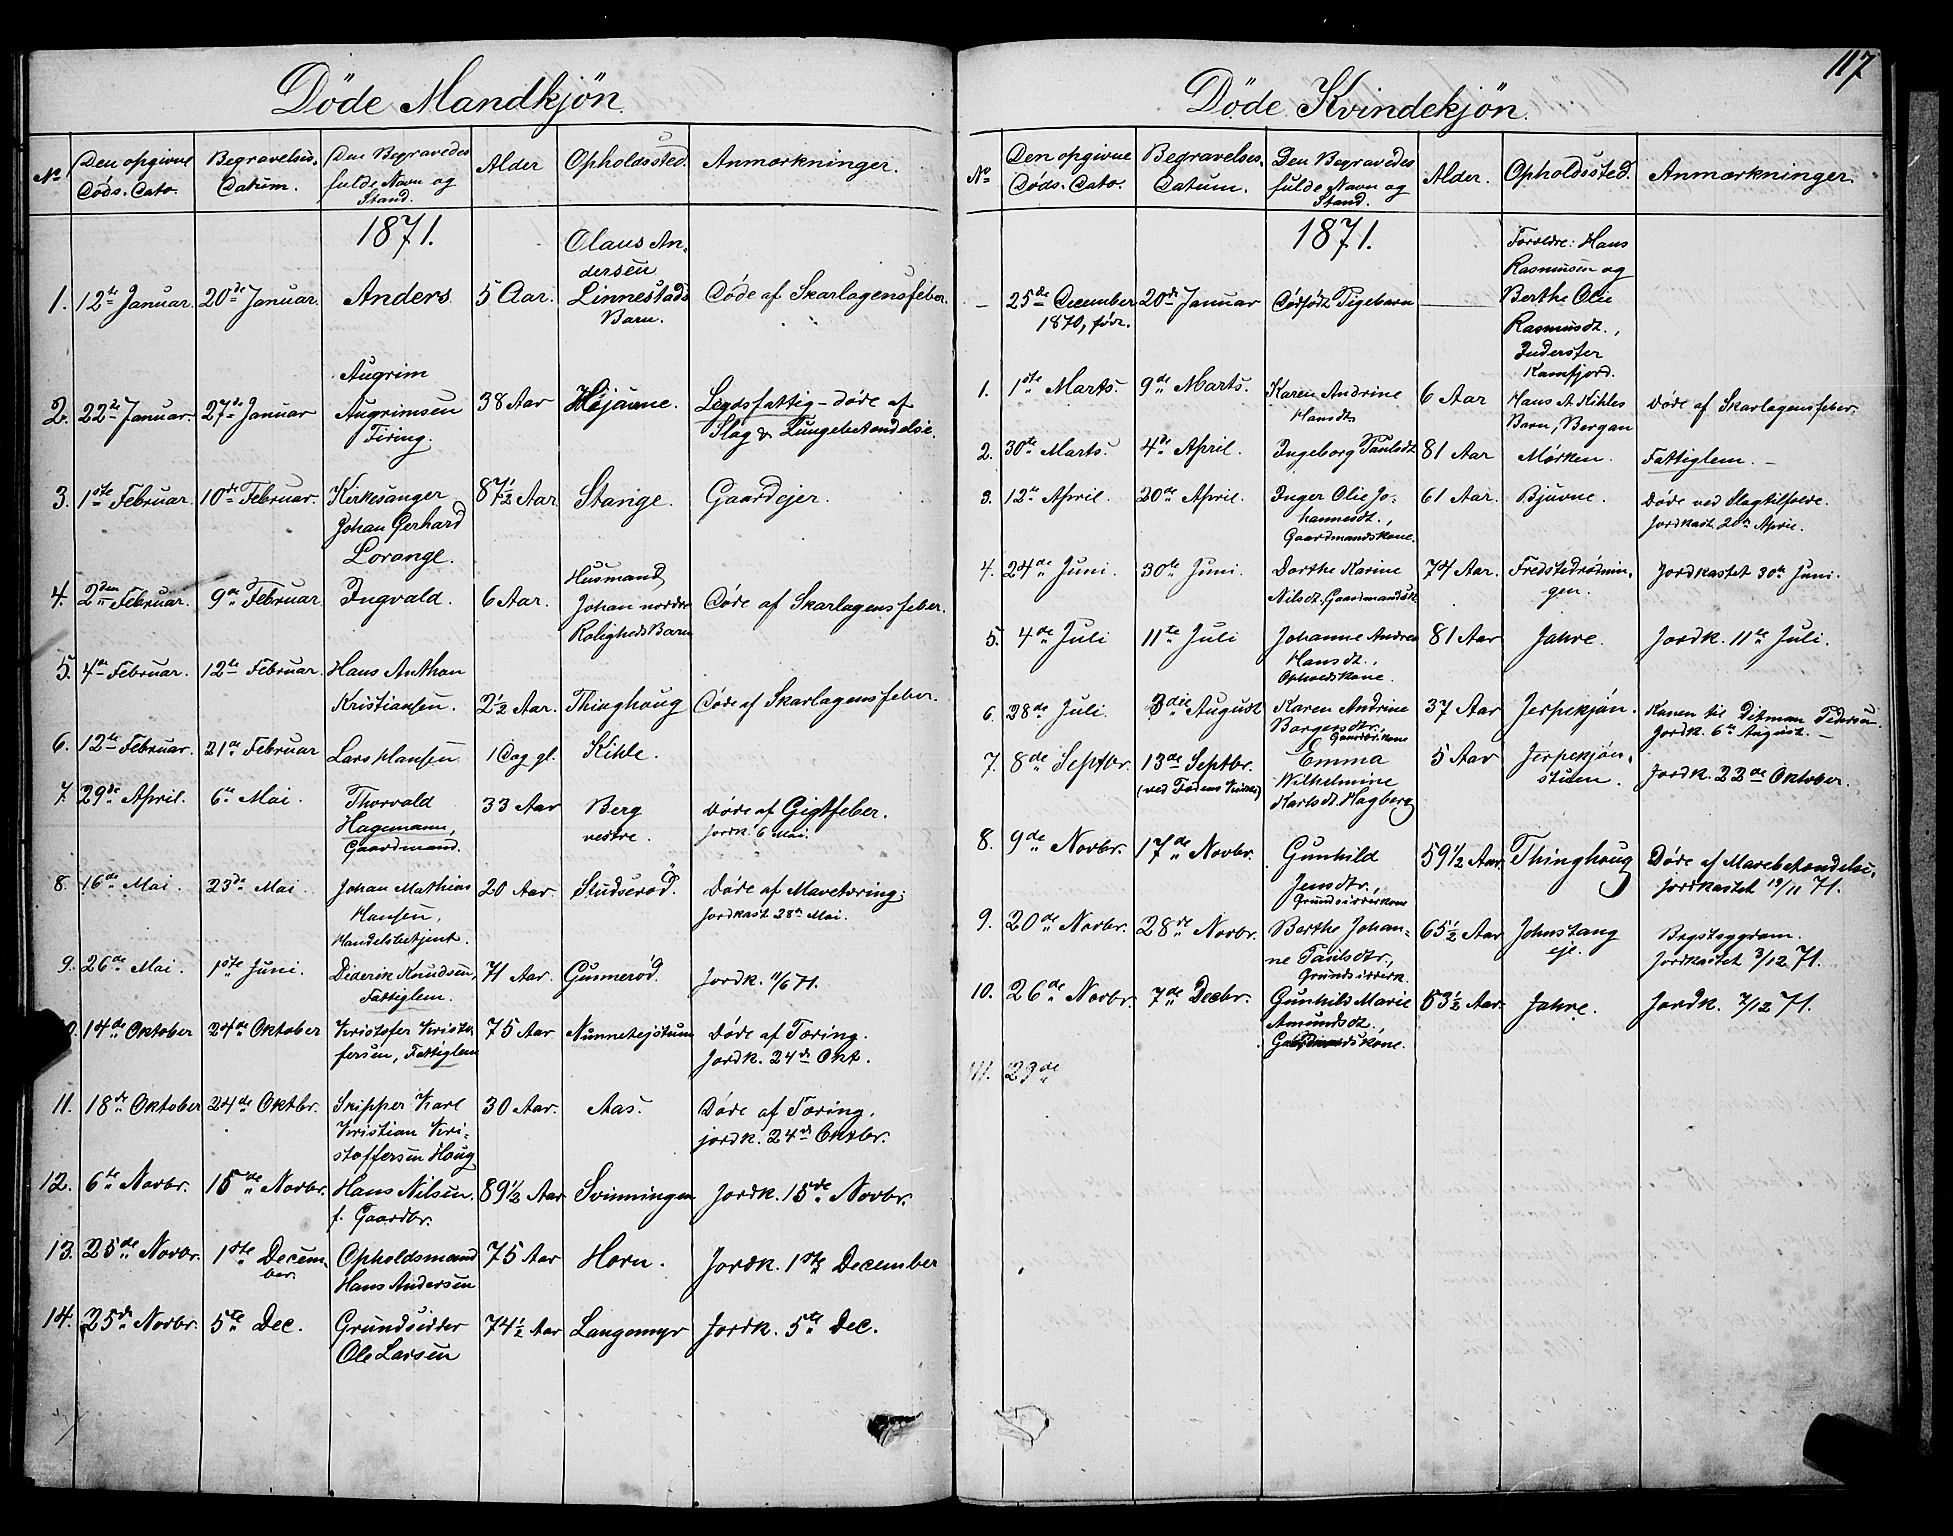 Döde Mandkjön.
No
Den opgivne Døds-Dato.
Begravelses-Datum.
Den Begravedes fulde Navn og Stand.
Alder
Opholdssted.
Anmærkninger.
1871.
1. 12te Januar. 20de Januar. Anders 5 Aar. Olaus Andersen Linnestads Barn. Døde af Skarlagensfeber.
2. 22de Januar. 27de Januar Augrim Augrimsen Firing. 38 Aar Hejanne. Legdsfattig - døde af Slag & Lungebetændelse.
3. 1ste Februar. 10de Februar. Kirkesanger Johan Gerhard Lorange. 87½ Aar Stange. Gaardejer.
4. 2den Februar. 9de Februar Ingvald. 6 Aar. Husmand Johan nordre Roligheds Barn Døde af Skarlagensfeber.
5. 4de Februar. 12te Februar. Hans Anthon Kristiansen. 2½ Aar. Thinghoug Døde af Skarlagensfeber.
6. 12te Februar. 21de Februar Lars Hansen 1 Dag gl. Kihle.
7. 29de April. 6te Mai. Thorvald Hagemann, Gaardmand. 33 Aar Berg vestre. Døde af Gigtfeber. Jordk. 6 Mai.
8. 16de Mai. 23de Mai. Johan Mathias Hansen, Handelsbetjent. 20 Aar Studserød. Døde af Mavetæring; Jordkast. 28de Mai.
9. 26de Mai. 1ste Juni. Diderik Knudsen, Fattiglem. 71 Aar. Gunnerød. Jordk. 11/6 71.
14de Oktober 24de Oktober Kristofer Kristofersen, Fattiglem 75 Aar Nunnetejstuen Døde af Tæring. Jordk. 24de Okt.
11. 18de Oktober 24de Oktbr. Skipper Karl Kristian Kristoffersen Houg 30 Aar. Aas. Døde af Tæring. jordk. 24de Oktbr.
12. 6te Novbr. 15de Novbr. Hans Nilsen. f. Gaardbr. 89½ Aar Svinningen Jordk. 15de Novbr.
13. 25de Novbr. 1ste December. Opholdsmand Hans Andersen 75 Aar Horn. Jordk. 1ste December
14. 25de Novbr. 5te Dec. Grundsidder Ole Larsen 74½ Aar Langemyr Jordk. 5te Dec.
117
Döde Kvindekjön.
No
Den opgivne Døds-Dato.
Begravelses-Datum.
Den Begravedes fulde Navn og Stand.
Alder.
Opholdssted.
Anmærkninger.
1871.
— 25de December 1870, født. 20de Januar Dødfødt Pigebarn — Foreldre: Hans Rasmusen og Berthe Olie Rasmusdt., Ramfjord.
1. 1ste Marts. 9de Marts. Karen Andrine Hansdt. 6 Aar Hans A. Kihles Barn, Bergan Døde af Skarlagensfeber.
2. 30te Marts. 4de April. Ingeborg Paulsdt 81 Aar Mørken. Fattiglem. —
3. 12te April. 20de April. Inger Olie Johannesdt., Gaardmandskone. 61 Aar. Bjuvne. Døde ved Slagtilfælde. Jordkast. 20de April.
4. 24de Juni. 30te Juni. Dorthe Karine Nilsdt. Gaardmandsk. 74 Aar. Fredstedrødningen. Jordkastet 30te Juni.
5. 4de Juli 11te Juli Johanne Andrea Hansdt., Opholdskone. 81 Aar Jahre. Jordk. 11te Juli.
6. 28de Juli. 3die August Karen Andrine Borgersdtr. Gaardbr.kone 37 Aar Jerpekjøn. Konen til Ditman Pedersen. Jordk. 6te August. —
7. 8de Septbr. 13de Septbr. Emma Wilhelmine Karlsdt. Hagberg 5 Aar Jerpekjønstuen. Jordk. 22de Oktober.
8. 9de Novbr. 17de Novbr. Gunhild Jensdtr., Grundsidderkone 59½ Aar. Thinghoug Døde af Mavebetændelse, Jordkastet 19/11 71.
9. 20de Novbr. 28de Novbr. Berthe Johanne Paulsdtr., Grundsidderk. 65½ Aar Johnstang eje. Brystsygdom. Jordkastet 3/12 71.
10. 26de Novbr. 7de Decbr. Gunhild Marie Amundsdt., Gaardmandskone. 53½ Aar. Jahre. Jordk. 7/12 71.
11. 29de